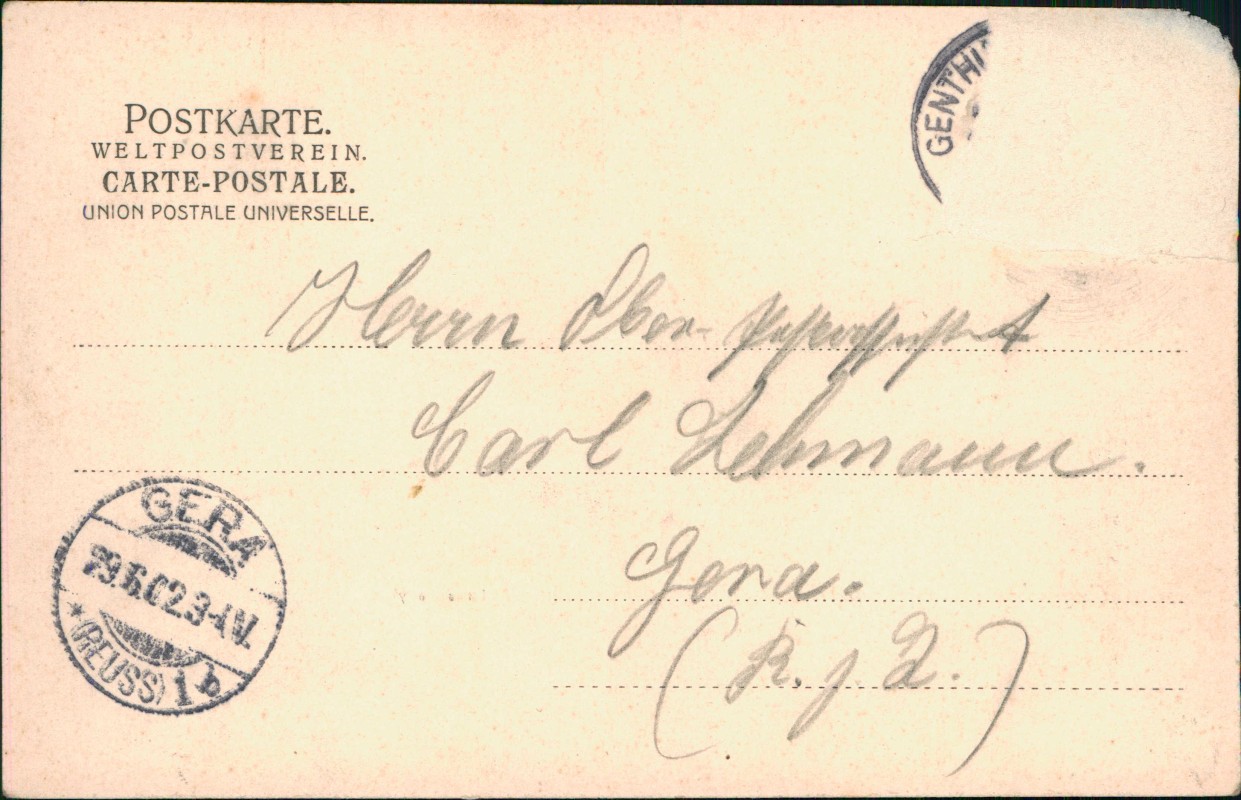 POSTKARTE.
WELTPOSTVEREIN.
CARTE-POSTALE.
UNION POSTALE UNIVERSELLE.
GENTHI
Herrn Ober-
Carl Lehmann.
Gera.
(R. j. L.)
GERA
29.6.02.3-4V.
* (REUSS) 1 b